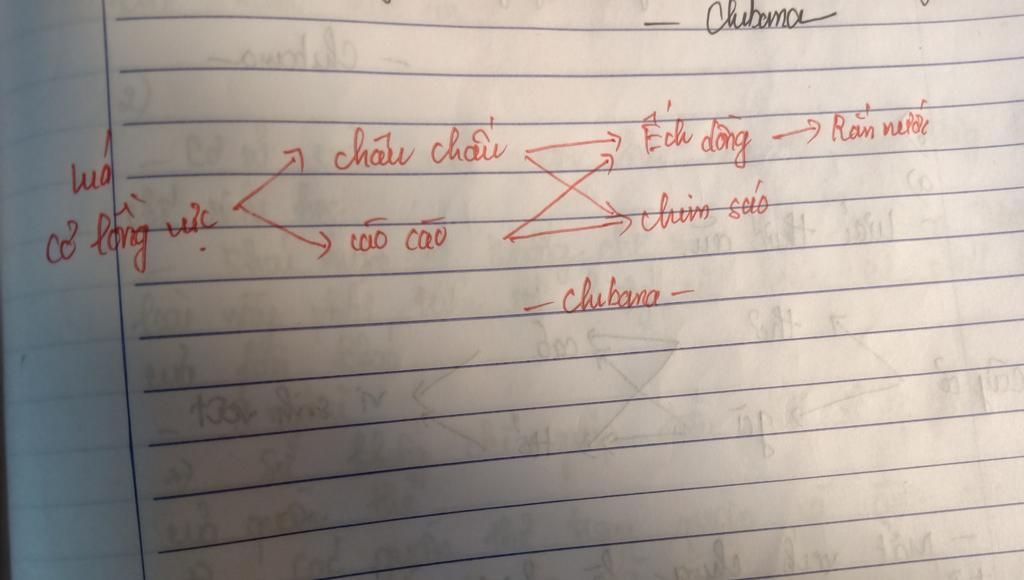 — Chibama
lúa
cỏ lồng vực
châu chấu
cào cào
Ếch đồng → Rắn nước
chim sáo
— Chibama —